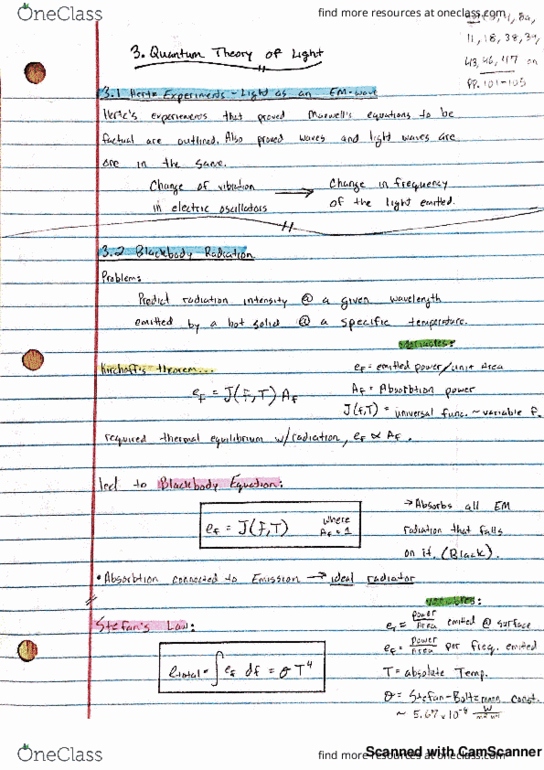 OneClass
find more resources at oneclass.com
11, 18, 38, 39,
43, 46, 47 on
pp. 101-105
3. Quantum Theory of Light
3.1 Hertz Experiments - Light as an EM-wave
Hertz's experiements that proved Maxwell's equations to be
factual are outlined. Also proved waves and light waves are
are in the same.
Change of vibration → Change in frequency
in electric oscillators of the light emitted.
3.2 Blackbody Radiation
Problem:
Predict radiation intensity @ a given wavelength
emitted by a hot solid @ a specific temperature.
Variables:
Kirchoff's theorem... ef = emitted power/unit Area
ef = J(f,T) Af Af = Absorbtion power
J(f,T) = universal func. ~ variable f.
required thermal equilibrium w/radiation, ef ∝ Af.
led to Blackbody Equation:
→ Absorbs all EM
ef = J(f,T) where Af = 1 radiation that falls
on it, (Black).
• Absorbtion connected to Emission → ideal radiator
Variables:
Stefan's Law: et = power/Area emitted @ surface
ef = power/Area per freq. emitted
etotal = ∫ ef df = σ T⁴ T = absolute Temp.
σ = Stefan-Boltzmann const.
~ 5.67 x 10⁻⁸ W/m²·K⁴
OneClass
find more resources at oneclass.com
Scanned with CamScanner